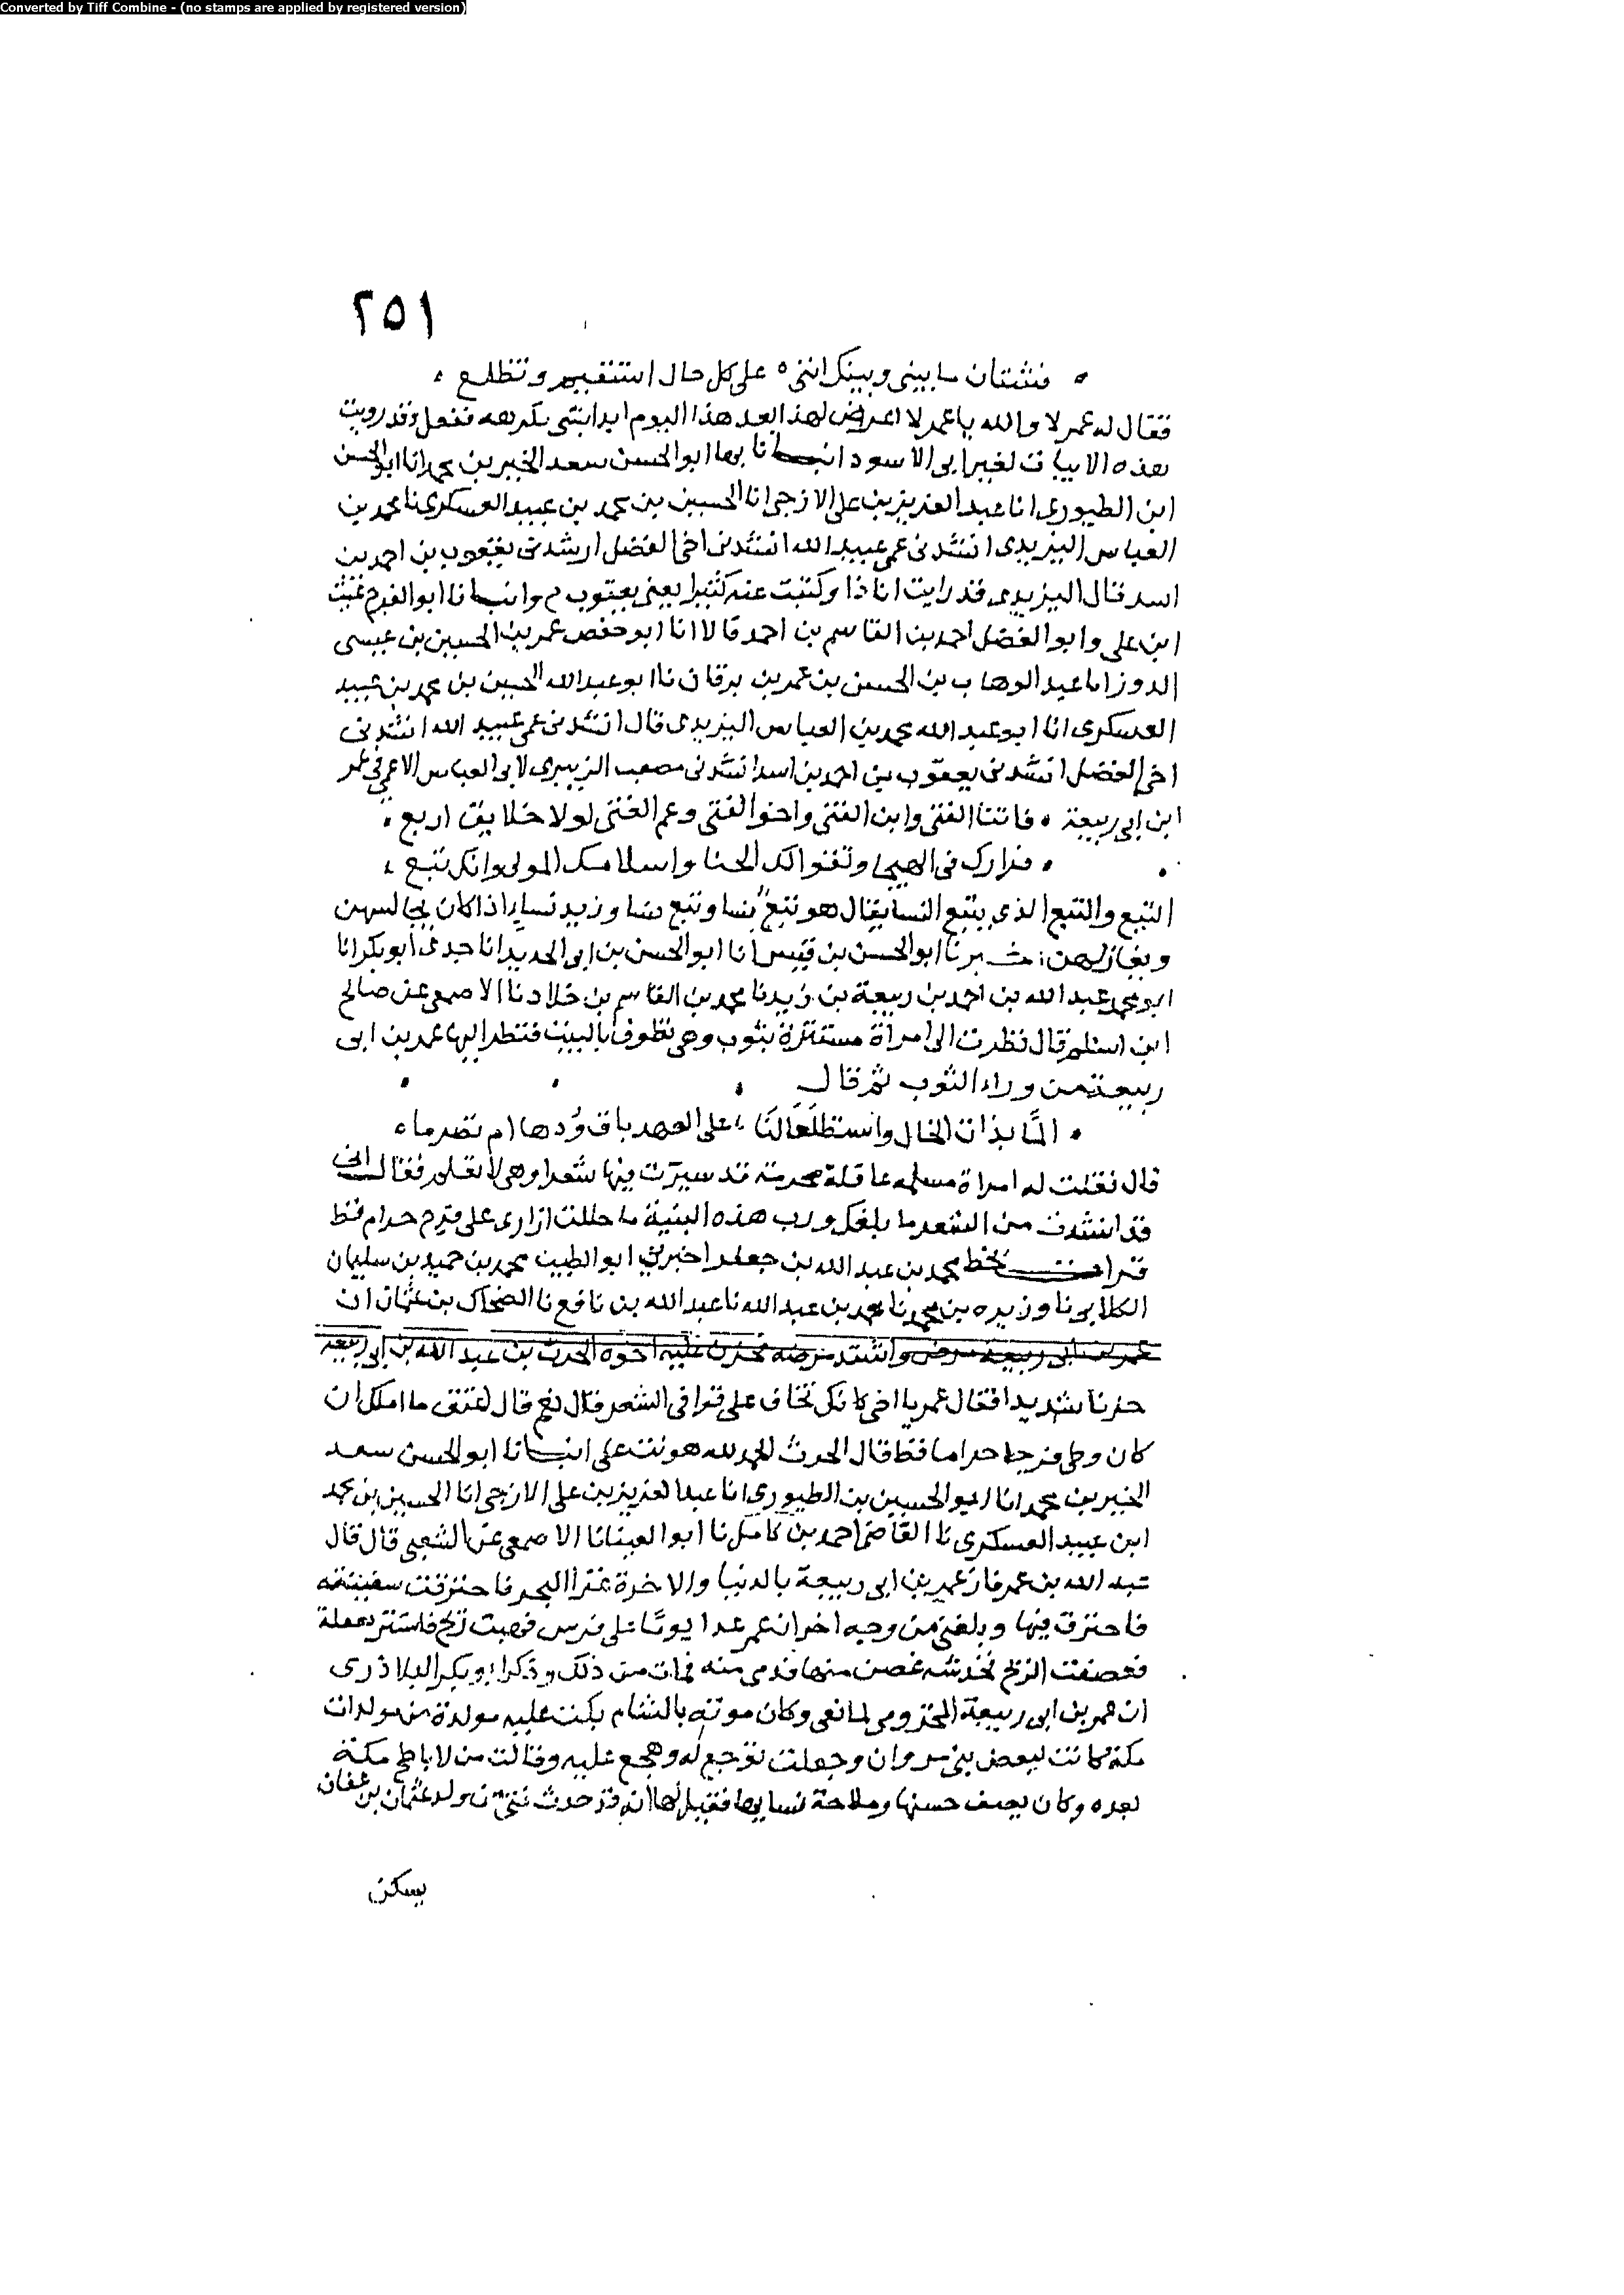 Converted by Tiff Combine - (no stamps are applied by registered version)
٢٥١
فشتان ما بيني وبينك انني ٥ على كل حال استقيم وتظلع
فقال له عمر لا والله يا عمر لا اعرض لهذا بعد هذا اليوم ابدا بشي يكرهه ففعل وقد رويت
هذه الابيات لغير ابي الاسود انبانا بها ابو الحسن سعد الخير بن محمد انا ابو الحسن
ابن الطيوري انا عبد العزيز بن علي الازجي انا الحسين بن محمد بن عبيد العسكري نا محمد بن
العباس اليزيدي انشدني عمي عبيد الله انشدني اخي الفضل ارشدني يعقوب بن احمد بن
اسد قال اليزيدي قد رايت انا ذا وكتبت عنه كثيرا يعني يعقوب ح وانبانا ابو الفرج غيث
ابن علي وابو الفضل احمد بن القاسم بن احمد قالا انا ابو حفص عمر بن الحسين بن عيسى
الدوز انا عبد الوهاب بن الحسن بن عمر بن برقان نا ابو عبد الله الحسين بن محمد بن عبيد
العسكري انا ابو عبد الله محمد بن العباس اليزيدي قال انشدني عمي عبيد الله انشدني
اخي الفضل انشدني يعقوب بن احمد بن اسد انشدني مصعب الزبيري لابي العباس الاعمى في عمر
ابن ابي ربيعة فانت الفتى وابن الفتى واخو الفتى وعم الفتى لولا خلايق اربع
فرارك في الهيجا وتقوالك الخنا واسلامك المولى وانك تبع
التبع والتبع الذي يتبع النسا يقال هو تبع نسا وتبع نسا وزير نسا اذا كان يجالسهن
ويغازلهن اخبرنا ابو الحسن بن قبيس انا ابو الحسن بن ابي الحديد انا جدي ابو بكر انا
ابو محمد عبد الله بن احمد بن ربيعة بن زيد نا محمد بن القاسم بن خلاد نا الاصمعي عن صالح
ابن اسلم قال نظرت الى امراة مستترة بثوب وهي تطوف بالبيت فنظر اليها عمر بن ابي
ربيعة من وراء الثوب ثم قال
المَّا بذات الخال واستطلعا لنا على العهد باق وُدها ام تصرما
قال فقلت له امراة مسلمه عاقلة محرمة قد سيرت فيها شعرا وهي لا تعلم فقال اني
قد انشدت من الشعر ما بلغك ورب هذه البنية ما حللت ازاري على فرج حرام قط
قرات بخط محمد بن عبد الله بن جعفر اخبرني ابو الطيب محمد بن حميد بن سليمان
الكلابي نا وزيره بن محمد نا محمد بن عبد الله نا عبد الله بن نافع نا الضحاك بن عثمان ان
عمر بن ابي ربيعة مرض واشتد مرضه فحزن عليه اخوه الحرث بن عبد الله بن ابي ربيعة
حزنا شديدا فقال عمر يا اخي كانك تخاف علي قوافي الشعر قال نعم قال اعتق ما املك ان
كان وطي فرجا حراما قط قال الحرث الحمد لله هونت علي انبانا ابو الحسن سعد
الخير بن محمد انا ابو الحسين بن الطيوري انا عبد العزيز بن علي الازجي انا الحسين بن محمد
ابن عبيد العسكري نا القاضي احمد بن كامل نا ابو العينا نا الاصمعي عن الشعبي قال قال
عبد الله بن عمر فاز عمر بن ابي ربيعة بالدنيا والاخرة غزا البحر فاحترقت سفينته
فاحترق فيها وبلغني من وجه اخر ان عمر غدا يومًا على فرس فهبت ريح فاستتر بعفلة
فعصفت الريح فخدشه غصن منها فدمي منه فمات من ذلك وذكر ابو بكر البلاذري
ان عمر بن ابي ربيعة المخزومي لما نعي وكان موته بالشام بكت عليه مولدة من مولدات
مكة كانت لبعض بني مروان وجعلت توجع له وتفجع عليه وقالت من لاباطح مكة
بعده وكان يصف حسنها وملاحة نسايها فقيل لها انه قد حدث فتى من ولد عثمان بن عفان
يسكن